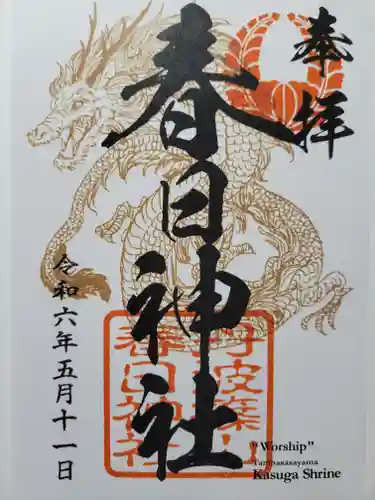 奉拝
春日神社
丹波篠山
春日神社
令和六年五月十一日
"Worship"
Tambasasayama
Kasuga Shrine